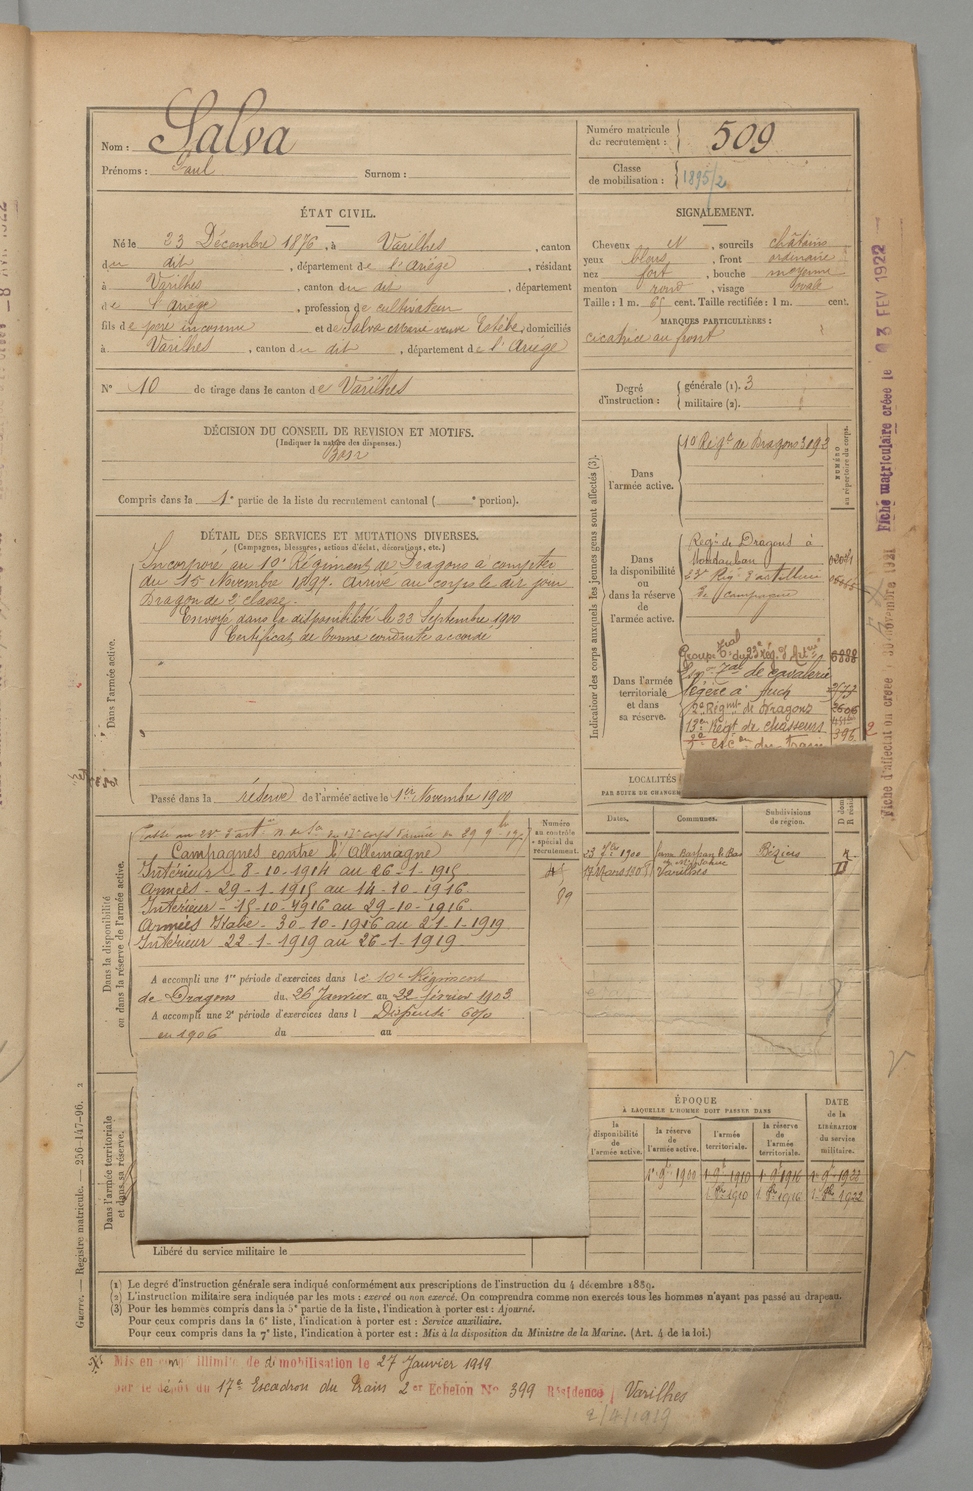 Nom : Salva
Prénoms : Paul Surnom :
Numéro matricule du recrutement : 509
Classe de mobilisation : 1895/2
ÉTAT CIVIL.
Né le 23 Décembre 1876, à Varilhes, canton
du dit, département de l'Ariège, résidant
à Varilhes, canton du dit, département
de l'Ariège, profession de cultivateur
fils de père inconnu et de Salva Marie veuve Estèbe, domiciliés
à Varilhes, canton du dit, département de l'Ariège
N° 10 de tirage dans le canton de Varilhes
SIGNALEMENT.
Cheveux et, sourcils châtains
yeux bleus, front ordinaire
nez fort, bouche moyenne
menton rond, visage ovale
Taille : 1 m. 65 cent. Taille rectifiée : 1 m. cent.
MARQUES PARTICULIÈRES :
cicatrice au front
Degré d'instruction : générale (1). 3
militaire (2).
DÉCISION DU CONSEIL DE REVISION ET MOTIFS.
(Indiquer la nature des dispenses.)
Bon
Compris dans la 1e partie de la liste du recrutement cantonal ( e portion).
DÉTAIL DES SERVICES ET MUTATIONS DIVERSES.
(Campagnes, blessures, actions d'éclat, décorations, etc.)
Dans l'armée active.
Incorporé au 10e Régiment de Dragons à compter
du 15 Novembre 1897. Arrivé au corps le dit jour
Dragon de 2e classe.
Envoyé dans la disponibilité le 23 Septembre 1900
Certificat de bonne conduite accordé
Passé dans la réserve de l'armée active le 1er Novembre 1900
Indication des corps auxquels les jeunes gens sont affectés (3).
NUMÉRO au répertoire du corps.
Dans l'armée active.
10 Régt de Dragons 3093
Dans la disponibilité ou dans la réserve de l'armée active.
Régt de Dragons à
Montauban
23e Régt d'artillerie
de campagne
Dans l'armée territoriale et dans sa réserve.
Groupe tal du 23e Rég. d'Artie 6888
de cavalerie
légère à Auch
2e Régmt de Dragons
13e Régt de chasseurs
du Train
LOCALITÉS
PAR SUITE DE CHANGEM
Dates. Communes. Subdivisions de région.
23 7bre 1900 Béziers
17 Mars 1905 Varilhes
Numéro au contrôle spécial du recrutement.
89
Dans la disponibilité ou dans la réserve de l'armée active.
Campagnes contre l'Allemagne
Intérieur - 8-10-1914 au 26-1-1915
Armées - 29-1-1915 au 14-10-1916
Intérieur - 15-10-1916 au 29-10-1916
Armées Italie - 30-10-1916 au 21-1-1919
Intérieur 22-1-1919 au 26-1-1919
A accompli une 1re période d'exercices dans le 10e Régiment
de Dragons du 26 Janvier au 22 février 1903
A accompli une 2e période d'exercices dans l Dispensé
en 1906 du au
Dans l'armée territoriale et dans sa réserve.
Libéré du service militaire le
ÉPOQUE
À LAQUELLE L'HOMME DOIT PASSER DANS
la disponibilité de l'armée active.
la réserve de l'armée active.
l'armée territoriale.
la réserve de l'armée territoriale.
DATE de la LIBÉRATION du service militaire.
1er 9bre 1900 1er 9bre 1910 1er 9bre 1916 1er 9bre 1922
(1) Le degré d'instruction générale sera indiqué conformément aux prescriptions de l'instruction du 4 décembre 1889.
(2) L'instruction militaire sera indiquée par les mots : exercé ou non exercé. On comprendra comme non exercés tous les hommes n'ayant pas passé au drapeau.
(3) Pour les hommes compris dans la 5e partie de la liste, l'indication à porter est : Ajourné.
Pour ceux compris dans la 6e liste, l'indication à porter est : Service auxiliaire.
Pour ceux compris dans la 7e liste, l'indication à porter est : Mis à la disposition du Ministre de la Marine. (Art. 4 de la loi.)
Mis en congé illimité de démobilisation le 27 Janvier 1919
par le dépôt du 17e Escadron du Train 2er Echelon N° 399 Résidence Varilhes
2/4/1919
Guerre. — Registre matricule. — 256-147-96. 2
Fiche matriculaire créée le 3 FEV 1922
Fiche d'affectation créée le 30 novembre 1921